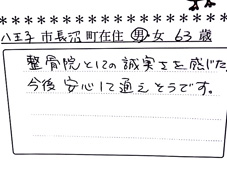 八王子市長沼町在住 男・女 63歳
整骨院としての誠実さを感じた
今後安心して通えそうです。